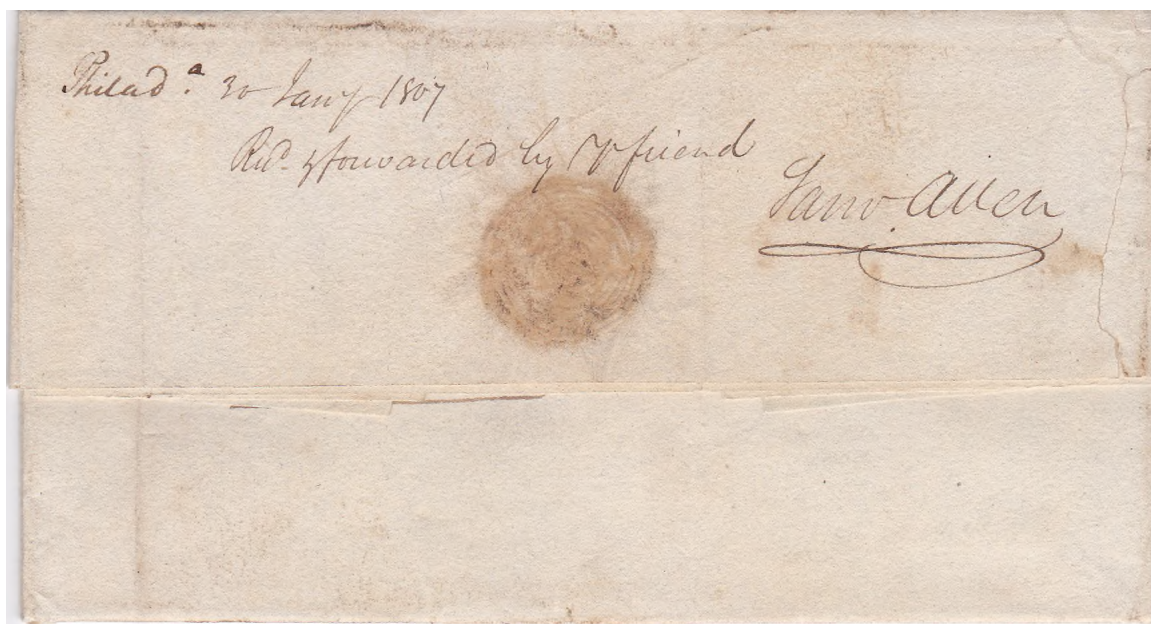 Philadª. 30 Jany 1807
Recd. & forwarded by Yr friend
Allen